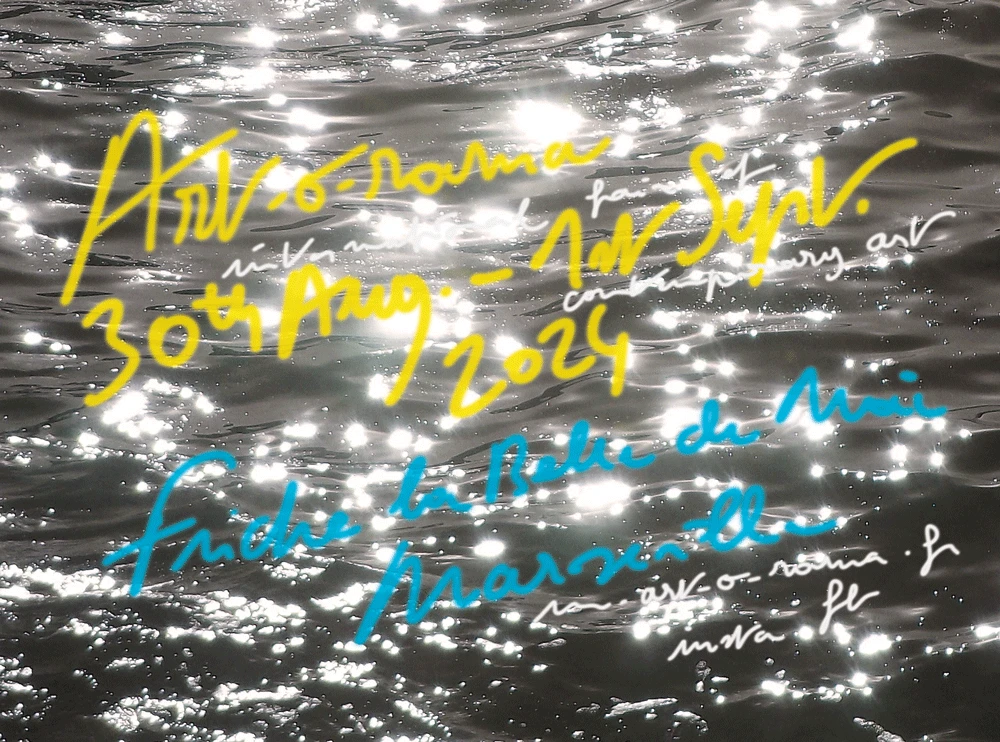 Art-o-rama
international fair of
30th Aug. - 1st Sept.
contemporary art
2024
friche la Belle de Mai
Marseille
art-o-rama.fr
insta fb